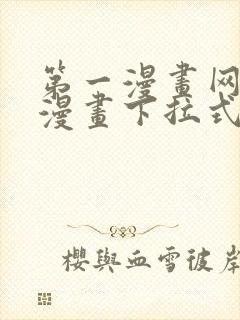 第一漫畫网
漫畫下拉式
櫻與血雪彼岸